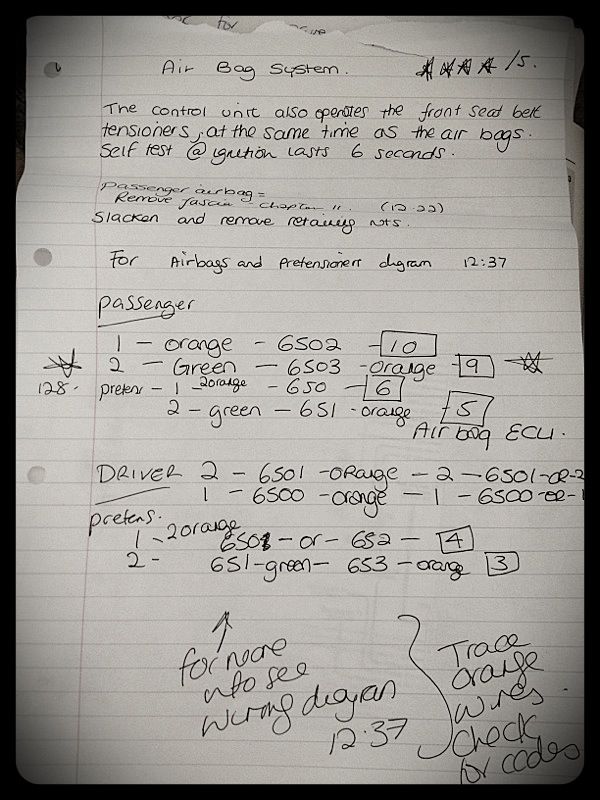 for
Air Bag System. /5.
The control unit also operates the front seat belt
tensioners, at the same time as the air bags.
Self test @ ignition lasts 6 seconds.
Passenger airbag =
Remove fascia - chapter 11. (12.22)
Slacken and remove retaining nts.
For Airbags and Pretensioners diagram 12:37
passenger
1 - orange - 6502 - 10
2 - Green - 6503 - orange - 9
128.
pretens - 1 - 2orange - 650 - 6
2 - green - 651 - orange - 5
Air bag ECU.
DRIVER 2 - 6501 - ORange - 2 - 6501-OR-2
1 - 6500 - orange - 1 - 6500-OR-1
pretens.
1 - 2orange 650 - or - 652 - 4
2 - 651-green- 653 - orange 3
for more
info see
wiring diagram
12.37
Trace
orange
wires.
check
for codes